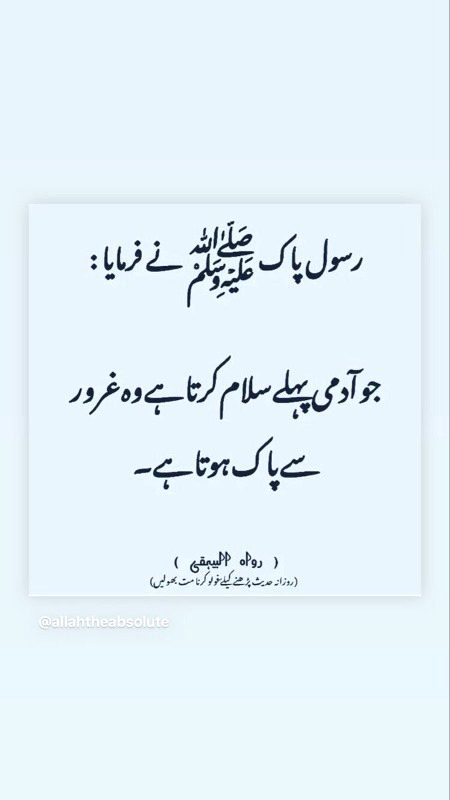 رسول پاک ﷺ نے فرمایا:
جو آدمی پہلے سلام کرتا ہے وہ غرور
سے پاک ہوتا ہے۔
( رواہ البیہقی )
(روزانہ حدیث پڑھنے کیلئے فولو کرنا مت بھولیں)
@allahtheabsolute